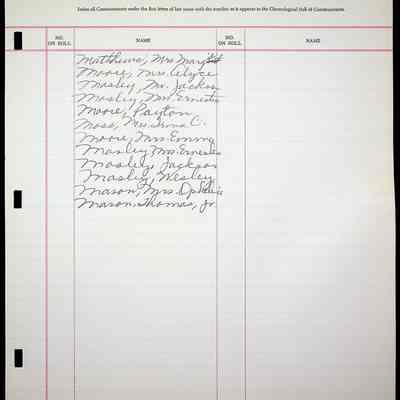 Index all Communicants under the first letter of last name with the number as it appears in the Chronological Roll of Communicants.
NO. ON ROLL NAME NO. ON ROLL NAME
Matthews, Mrs Mary
Moore, Mrs. Alyce
Mosley, Mr. Jackson
Mosley, Mrs. Ernestine
Moore, Payton
Moss, Mrs. Irma C.
Moore, Mrs. Emma
Mosley Mrs. Ernestine
Mosley, Jackson
Mosley, Wesley
Mason, Mrs. Ophelia
Mason, Thomas, Jr.